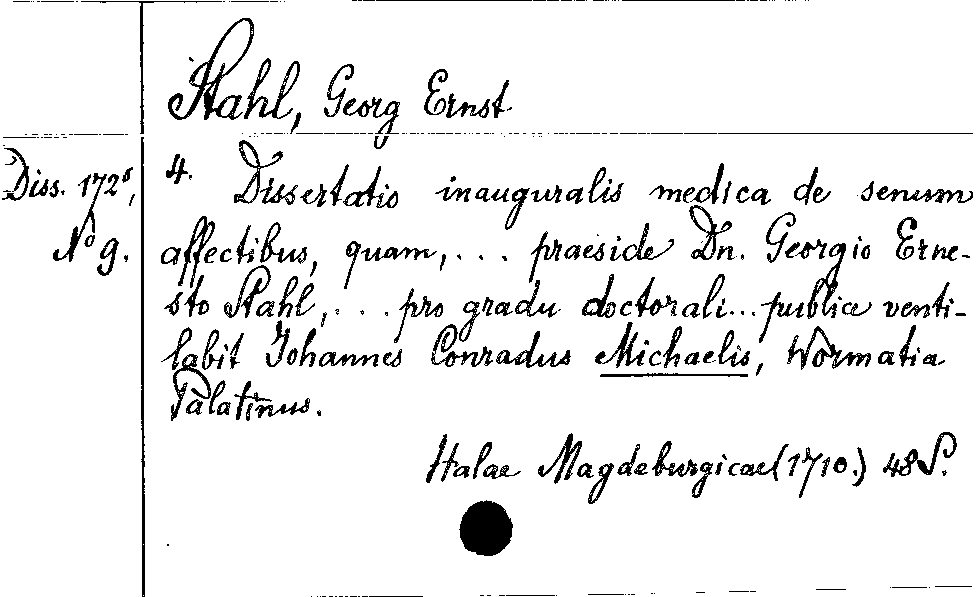 Stahl, Georg Ernst
Diss. 172⁵,
No 9.
4. Dissertatio inauguralis medica de senum
affectibus, quam,... praeside Dn. Georgio Erne-
sto Stahl,... pro gradu doctorali... publice venti-
labit Johannes Conradus Michaelis, Wormatia
Palatinus.
Halae Magdeburgicae (1710.) 48 S.